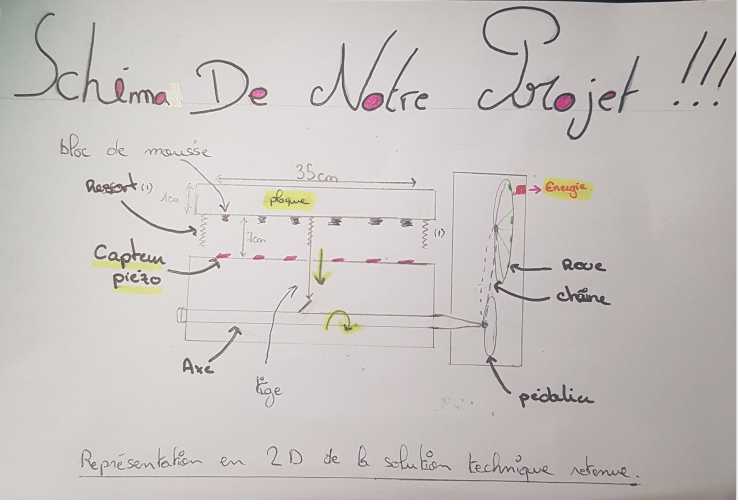 Schéma De Notre Projet !!!
bloc de mousse
35cm
Ressort (1)
1cm
plaque
Energie
7cm
(1)
Capteur
piézo
Roue
chaîne
Axe
tige
pédalier
Représentation en 2D de la solution technique retenue.